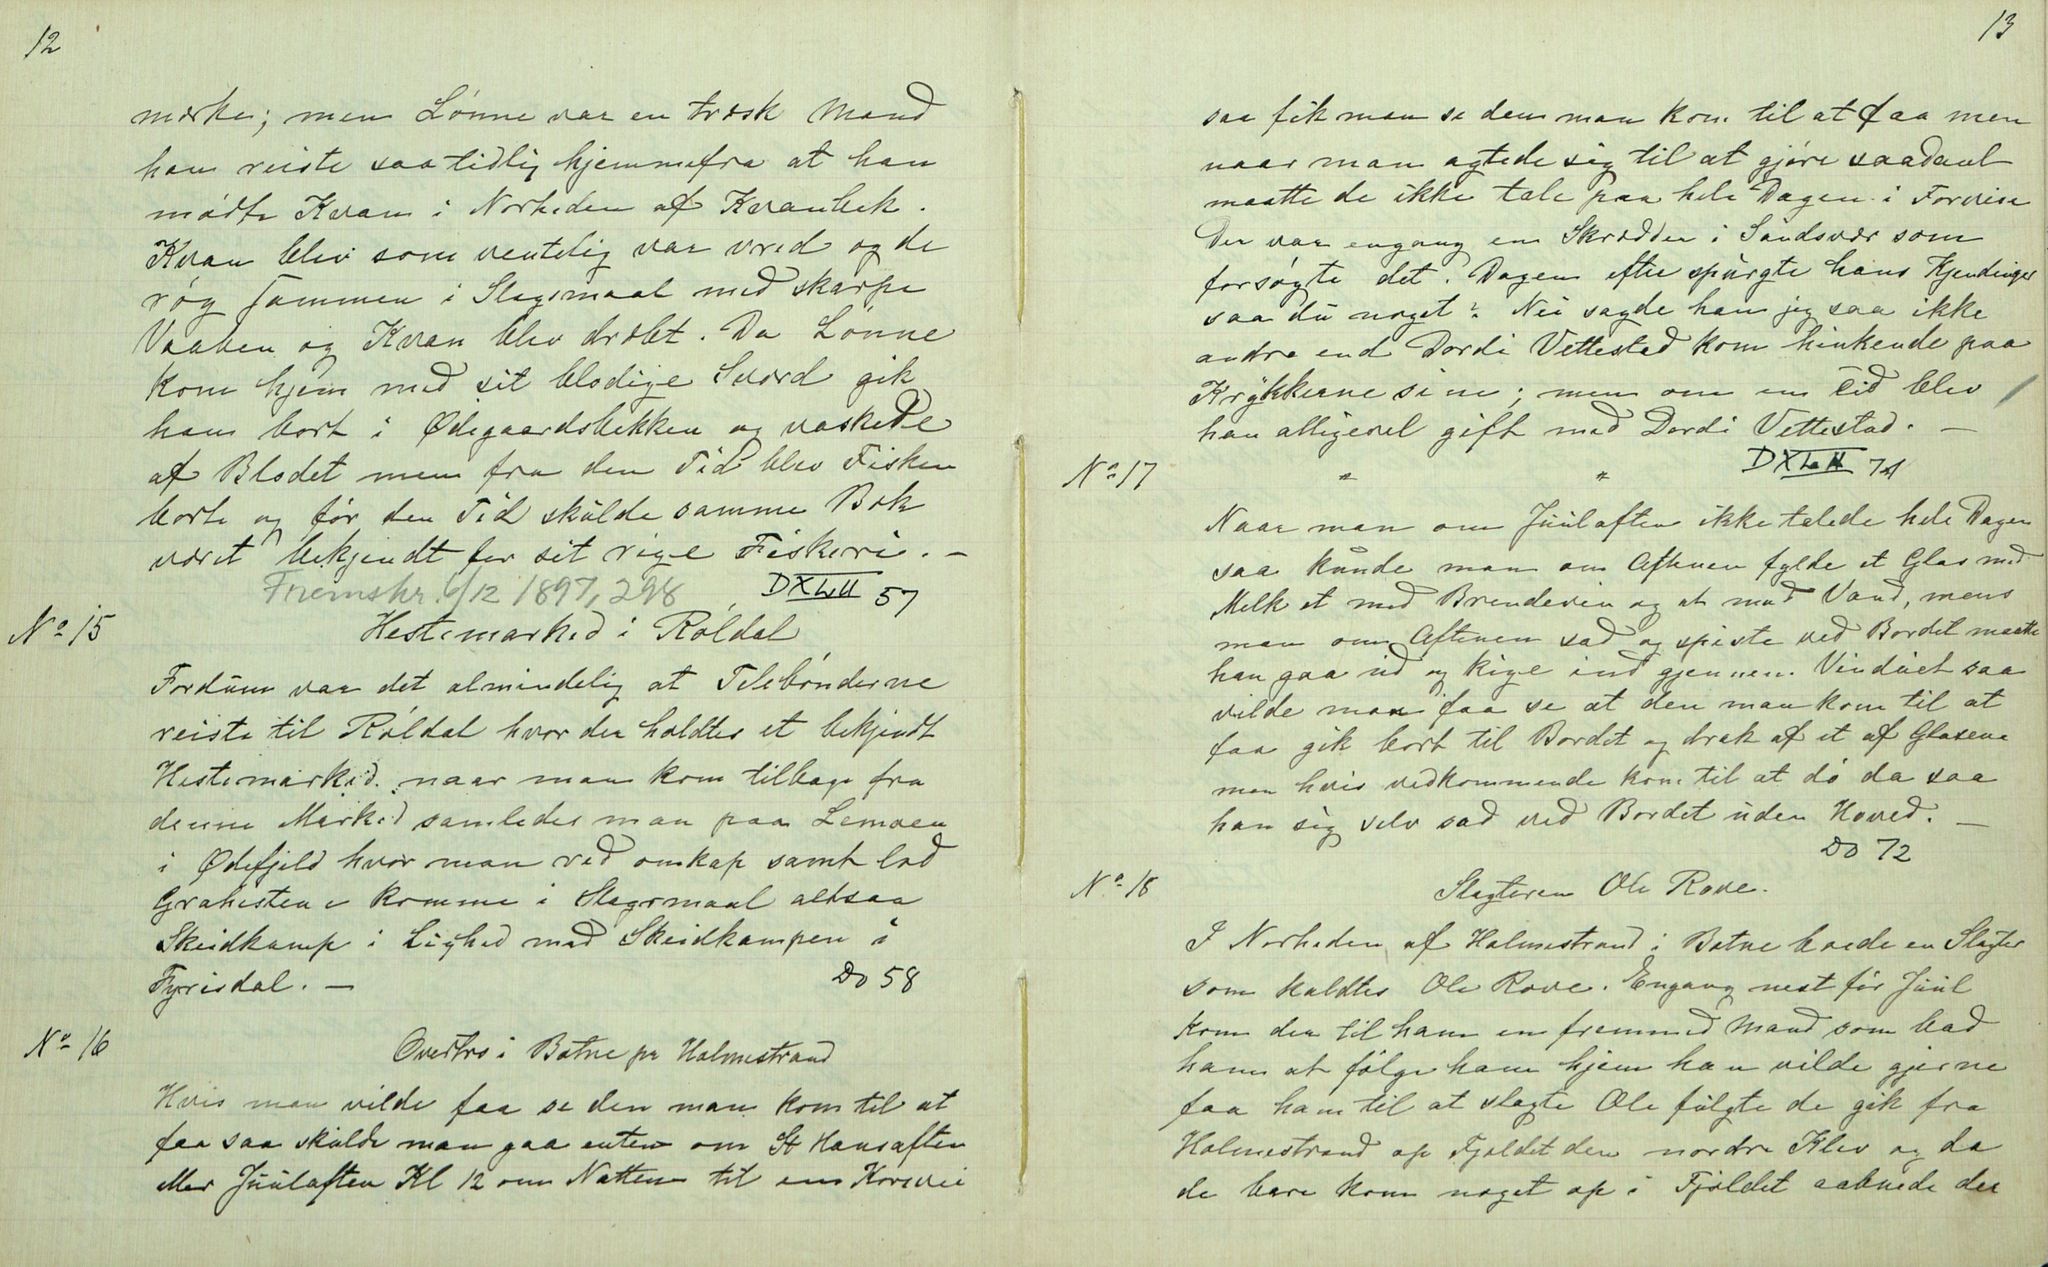 12
mærke; men Lønne var en træsk Mand
han reiste saa tidlig hjemmefra at han
mødte Kvan i Nærheden af Kvanbek.
Kvan blev som ventelig var vred og de
røg sammen i Slagsmaal med skarpe
Vaaben og Kvan blev dræbt. Da Lønne
kom hjem med sit blodige Sværd gik
han bort i Ødegaardsbekken og vaskede
af Blodet men fra den Tid blev Fisken
borte og før den Tid skulde samme Bæk
været bekjendt for sit rige Fiskeri. —
Fremskr. 6/12 1897, 298 DXLII 57
No 15 Hestemarked i Røldal
Fordum var det almindelig at Telebønderne
reiste til Røldal hvor der holdtes et bekjendt
Hestemarked. naar man kom tilbage fra
denne Marked samledes man paa Lemoen
i Ødefjeld hvor man red omkap samt lod
Grahestene komme i Slagsmaal altsaa
Skeidkamp i Lighed med Skeidkampen i
Fyrisdal. — Do 58
No 16 Overtro i Botne pr Holmestrand
Hvis man vilde faa se den man kom til at
faa saa skulde man gaa enten om St Hansaften
eller Juulaften Kl 12 om Natten til en Korsvei
13
saa fik man se den man kom til at faa men
naar man agtede sig til at gjøre saadant
maatte de ikke tale paa hele Dagen i Forveien
Der var engang en Skrædder i Sandsvær som
forsøgte det. Dagen efter spurgte hans Kjendinger
saa du noget? Nei sagde han jeg saa ikke
andre end Dordi Vettestad kom hinkende paa
Krykkerne sine; men om en Tid blev
han alligevel gift med Dordi Vettestad. —
DXLII 71
No 17 " "
Naar man om Juulaften ikke talede hele Dagen
saa kunde man om Aftenen fylde et Glas med
Melk et med Brendevin og et med Vand, mens
man om Aftenen sad og spiste ved Bordet maatte
han gaa ud og kige ind gjennem Vinduet saa
vilde man faa se at den man kom til at
faa gik bort til Bordet og drak af et af Glasene
men hvis vedkommende kom til at dø da saa
han sig selv sad ved Bordet uden Hoved. —
Do 72
No 18 Slagteren Ole Rove.
I Nærheden af Holmestrand i Botne boede en Slagter
som kaldtes Ole Rove. Engang nest før Juul
kom der til ham en fremmed Mand som bad
ham at følge ham hjem han vilde gjerne
faa ham til at slagte Ole fulgte de gik fra
Holmestrand op Fjeldet den nordre Klev og da
de bare kom noget op i Fjeldet aabnede der